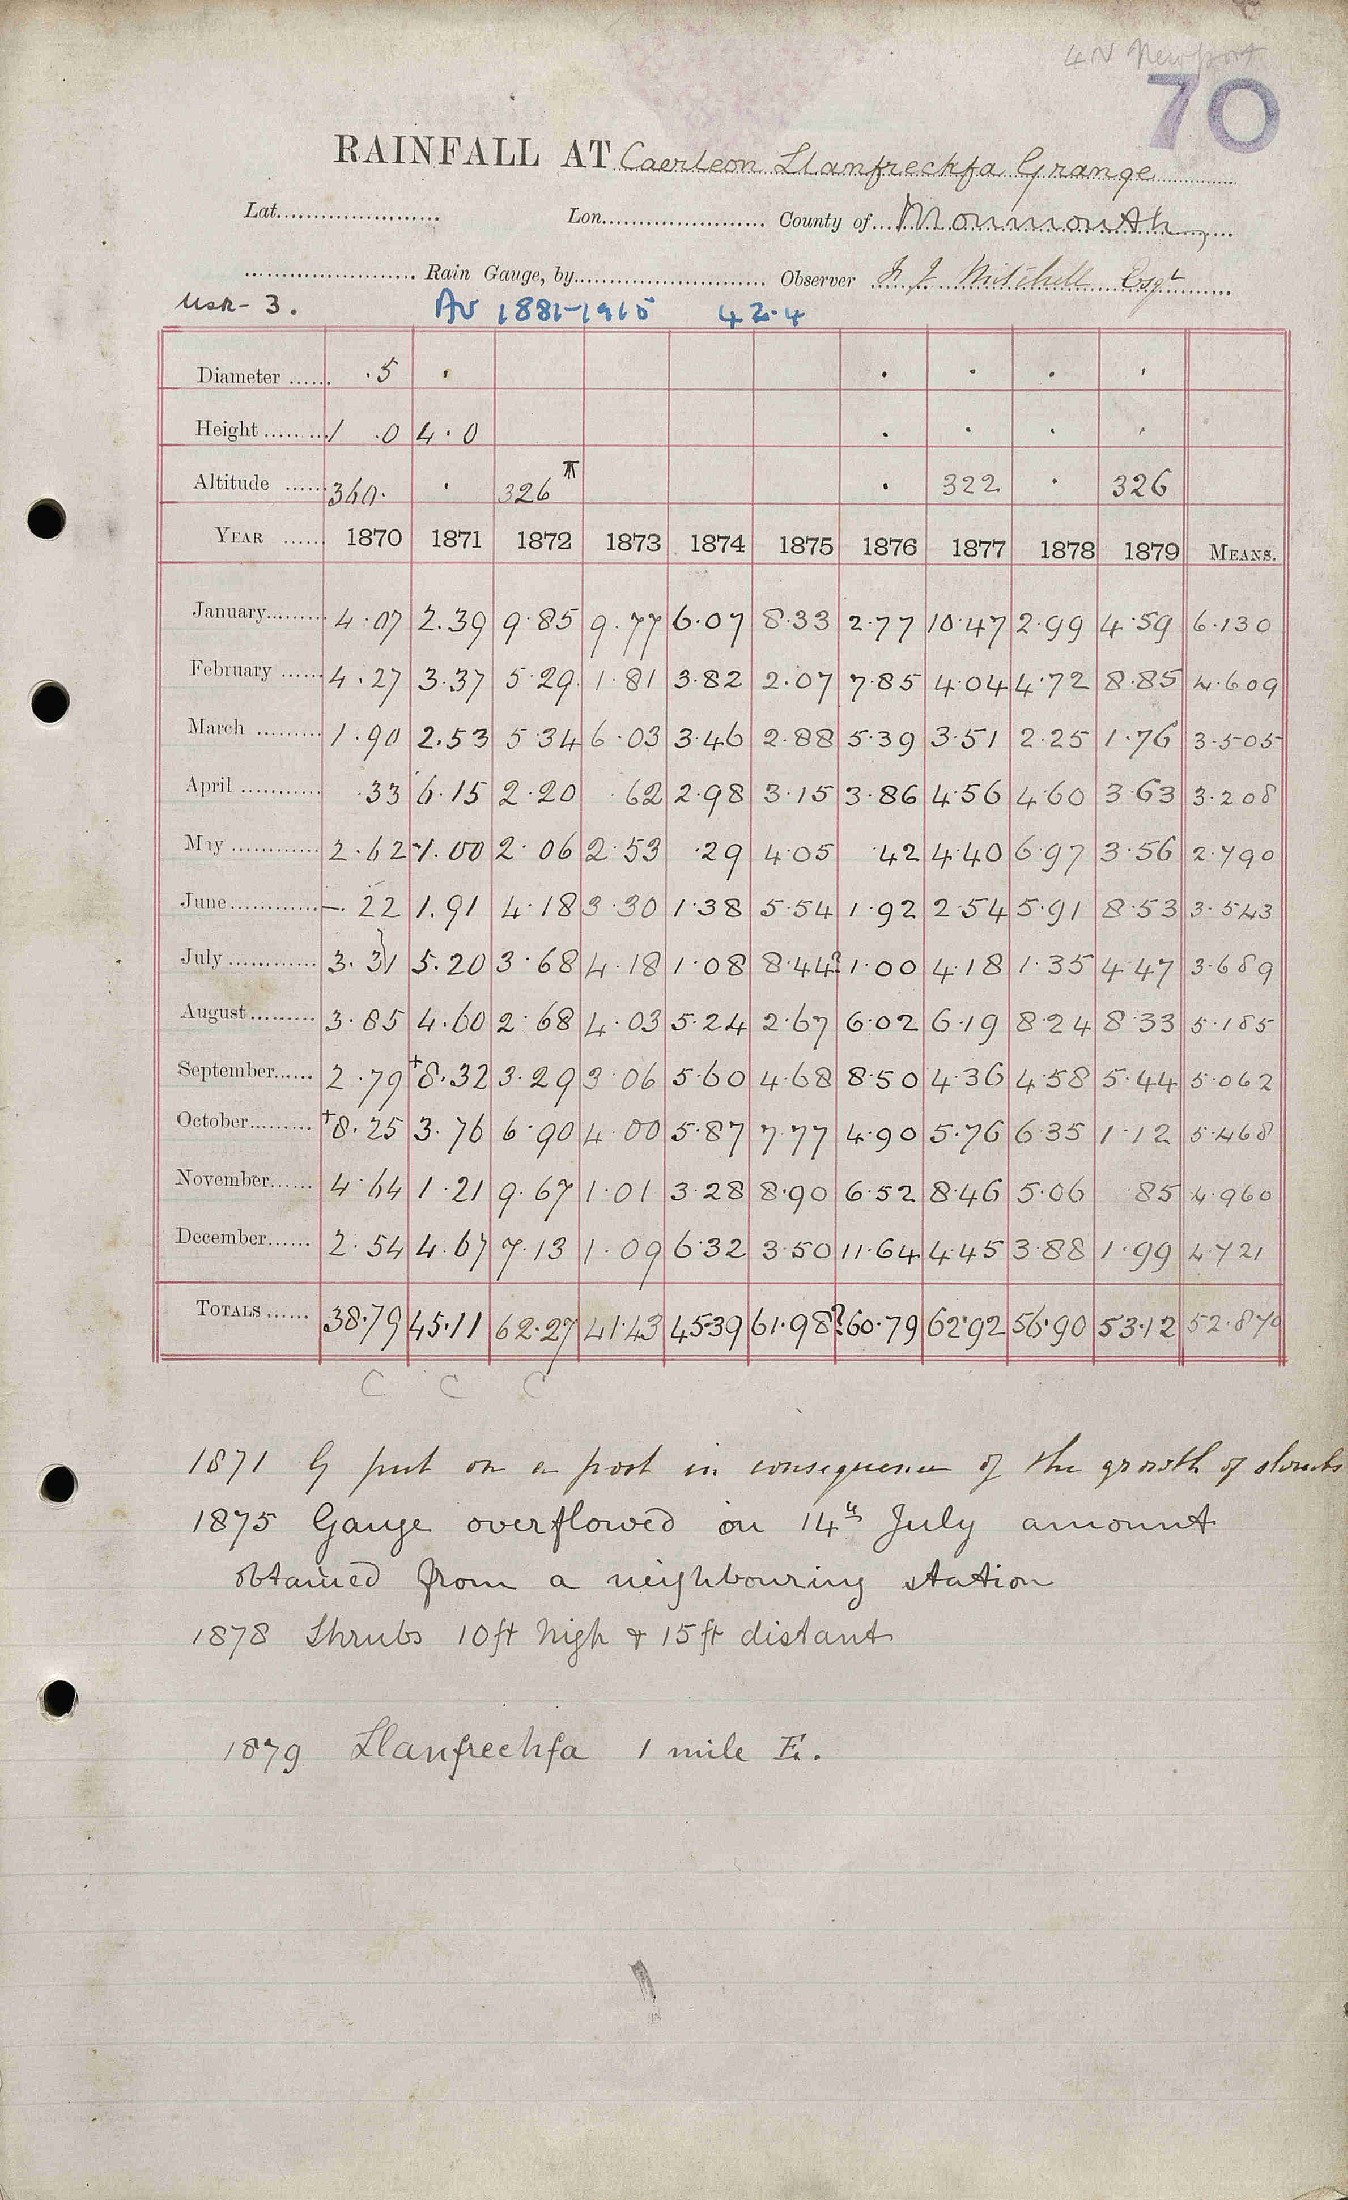 4N Newport
70
RAINFALL AT Caerleon Llanfrechfa Grange
Lat. Lon. County of Monmouth
Rain Gauge, by Observer Mitchell Esqr
Usk-3. Av 1881-1915 42.4
Diameter .5 .  . . . .
Height 1 .0 4.0 . . . .
Altitude 360. . 326 . 322 . 326
YEAR 1870 1871 1872 1873 1874 1875 1876 1877 1878 1879 MEANS.
January 4.07 2.39 9.85 9.77 6.07 8.33 2.77 10.47 2.99 4.59 6.130
February 4.27 3.37 5.29 1.81 3.82 2.07 7.85 4.04 4.72 8.85 4.609
March 1.90 2.53 5.34 6.03 3.46 2.88 5.39 3.51 2.25 1.76 3.505
April .33 6.15 2.20 .62 2.98 3.15 3.86 4.56 4.60 3.63 3.208
May 2.62 1.00 2.06 2.53 .29 4.05 .42 4.40 6.97 3.56 2.790
June –.22 1.91 4.18 3.30 1.38 5.54 1.92 2.54 5.91 8.53 3.543
July 3.31 5.20 3.68 4.18 1.08 8.44? 1.00 4.18 1.35 4.47 3.689
August 3.85 4.60 2.68 4.03 5.24 2.67 6.02 6.19 8.24 8.33 5.185
September 2.79 +8.32 3.29 3.06 5.60 4.68 8.50 4.36 4.58 5.44 5.062
October +8.25 3.76 6.90 4.00 5.87 7.77 4.90 5.76 6.35 1.12 5.468
November 4.64 1.21 9.67 1.01 3.28 8.90 6.52 8.46 5.06 .85 4.960
December 2.54 4.67 7.13 1.09 6.32 3.50 11.64 4.45 3.88 1.99 4.721
TOTALS 38.79 45.11 62.27 41.43 45.39 61.98? 60.79 62.92 56.90 53.12 52.870
C C C
1871 G put on a post in consequence of the growth of shrubs
1875 Gauge overflowed on 14th July amount
obtained from a neighbouring station
1878 Shrubs 10ft high & 15ft distant
1879 Llanfrechfa 1 mile E.